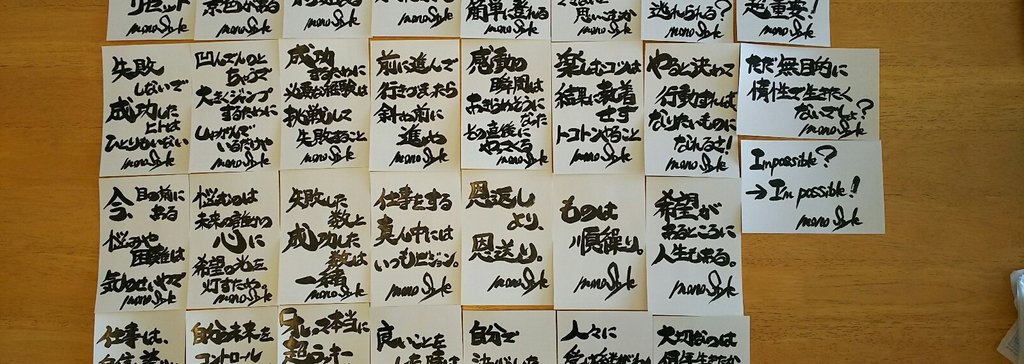 リセット
mono Style
景色がある
mono Style
mono Style
mono Style
簡単に登れる
mono Style
思いますか
mono Style
逃れられる?
mono Style
超重要!
mono Style
失敗
しないで
成功した
ヒトは
ひとりもいない
mono Style
凹んでんのと
ちゃうで
大きくジャンプ
するために
しゃがんで
いるだけや
mono Style
成功
するために
必要な経験は
挑戦して
失敗すること
mono Style
前に進んで
行きづまったら
斜め前に
進め
mono Style
感動の
瞬間は
あきらめそうに
なった
その直後に
やってくる
mono Style
楽しむコツは
結果に執着
せず
トコトンやること
mono Style
やると決めて
行動すれば
なりたいものに
なれるさ!
mono Style
ただ無目的に
惰性で生きたく
ないでしょ?
mono Style
Impossible?
→I'm possible!
mono Style
今、目の前に
ある
悩みや
困難は
気のせいやで
mono Style
悩むのは
未来の誰かの
心に
希望の光を
灯すためや。
mono Style
失敗した
数と
成功した
数は
一緒
mono Style
仕事をする
真ん中には
いつもビジョン。
mono Style
恩返し
より、
恩送り。
mono Style
ものは
順繰り。
mono Style
希望が
あるところに
人生もある。
mono Style
仕事は、
自らの未来を
コントロール
本当に
超ラッキー
良いことを
自分で
人々に
大切なのは